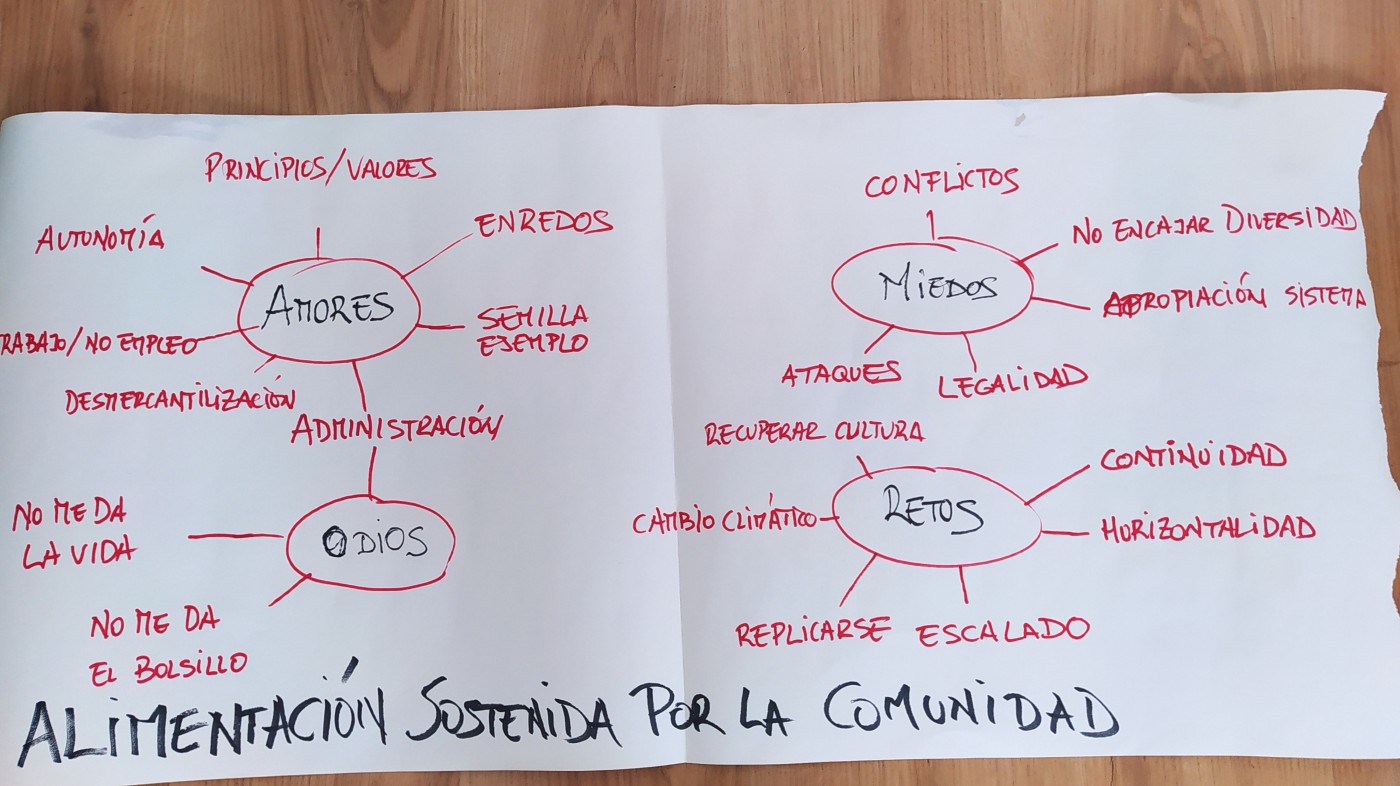 PRINCIPIOS/VALORES
AUTONOMÍA
ENREDOS
AMORES
RABAJO/NO EMPLEO
SEMILLA
EJEMPLO
DESMERCANTILIZACIÓN
ADMINISTRACIÓN
NO ME DA
LA VIDA
ODIOS
NO ME DA
EL BOLSILLO
CONFLICTOS
NO ENCAJAR DIVERSIDAD
MIEDOS
APROPIACIÓN SISTEMA
ATAQUES
LEGALIDAD
RECUPERAR CULTURA
CONTINUIDAD
CAMBIO CLIMÁTICO
RETOS
HORIZONTALIDAD
REPLICARSE
ESCALADO
ALIMENTACIÓN SOSTENIDA POR LA COMUNIDAD